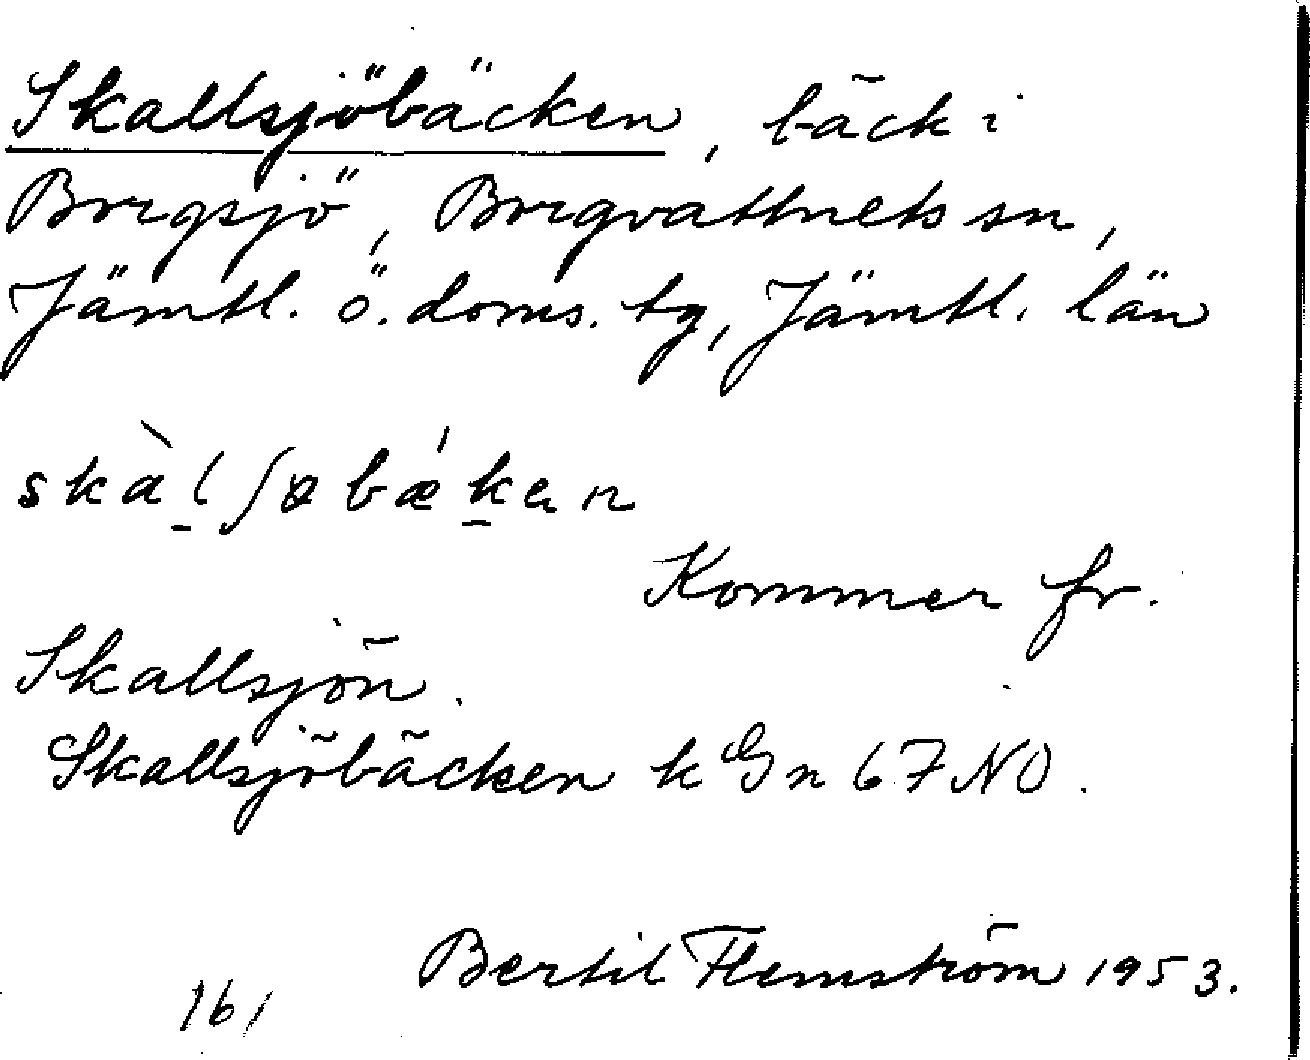 Skallsjöbäcken, bäck i
Borgsjö, Borgvattnets sn,
Jämtl. ö. doms. tg, Jämtl. län
skàl̠ʃøbǽk̠an
Kommer fr.
Skallsjön.
Skallsjöbäcken k Gn 67 NO.
Bertil Flemström 1953.
161